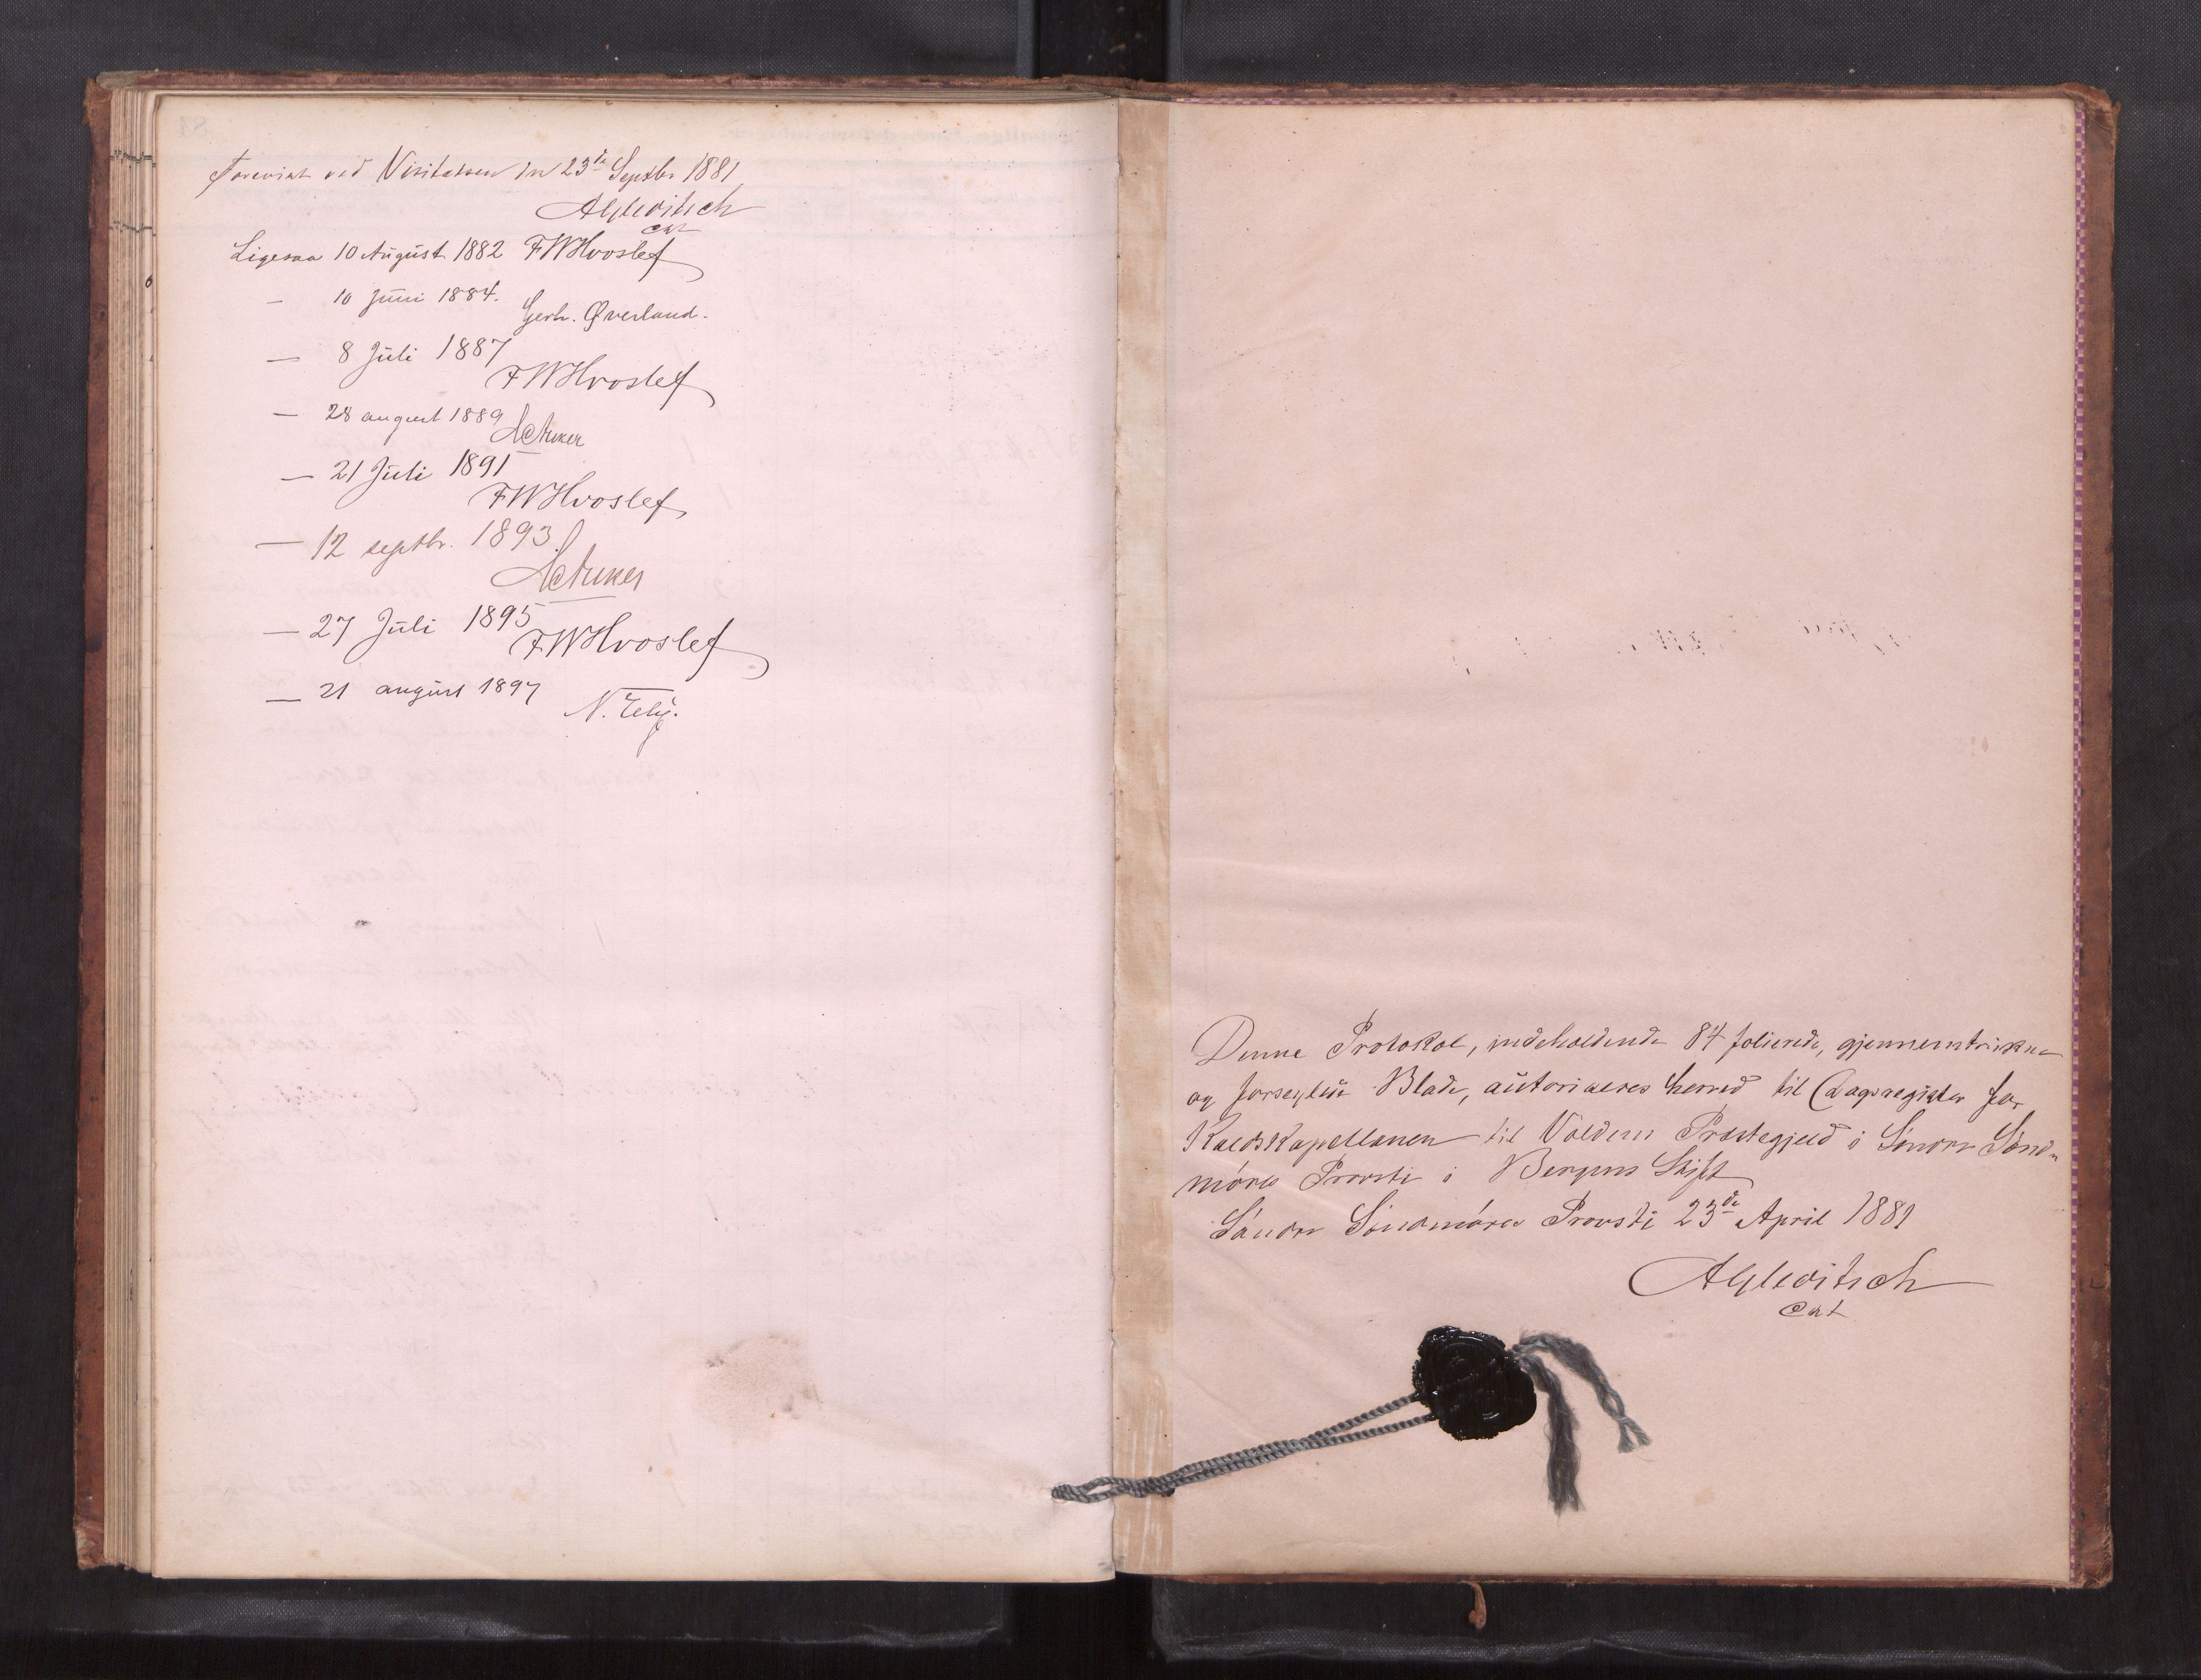 Forevist ved Visitatsen den 23de Septbr 1881
Ligesaa 10 August 1882 FWHvoslef
— 10 Juni 1884.
Gerh. Øverland.
— 8 Juli 1887
FWHvoslef
— 28 august 1889
— 21 Juli 1891
FWHvoslef
— 12 septbr. 1893.
— 27 Juli 1895
FWHvoslef
— 21 august 1897
Denne Protokol, indeholdende 84 folierede, gjennemtrukne
og forseglede Blade, autoriseres herved til Dagsregister for
Kaldskapellanen til Voldens Præstegjeld i Søndre Sønd-
møres Provsti i Bergens Stift
Søndre Søndmøres Provsti 23de April 1881